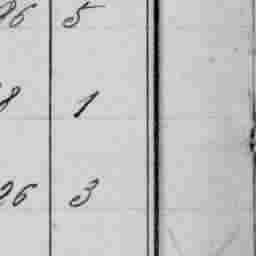 96 5
8 1
26 3